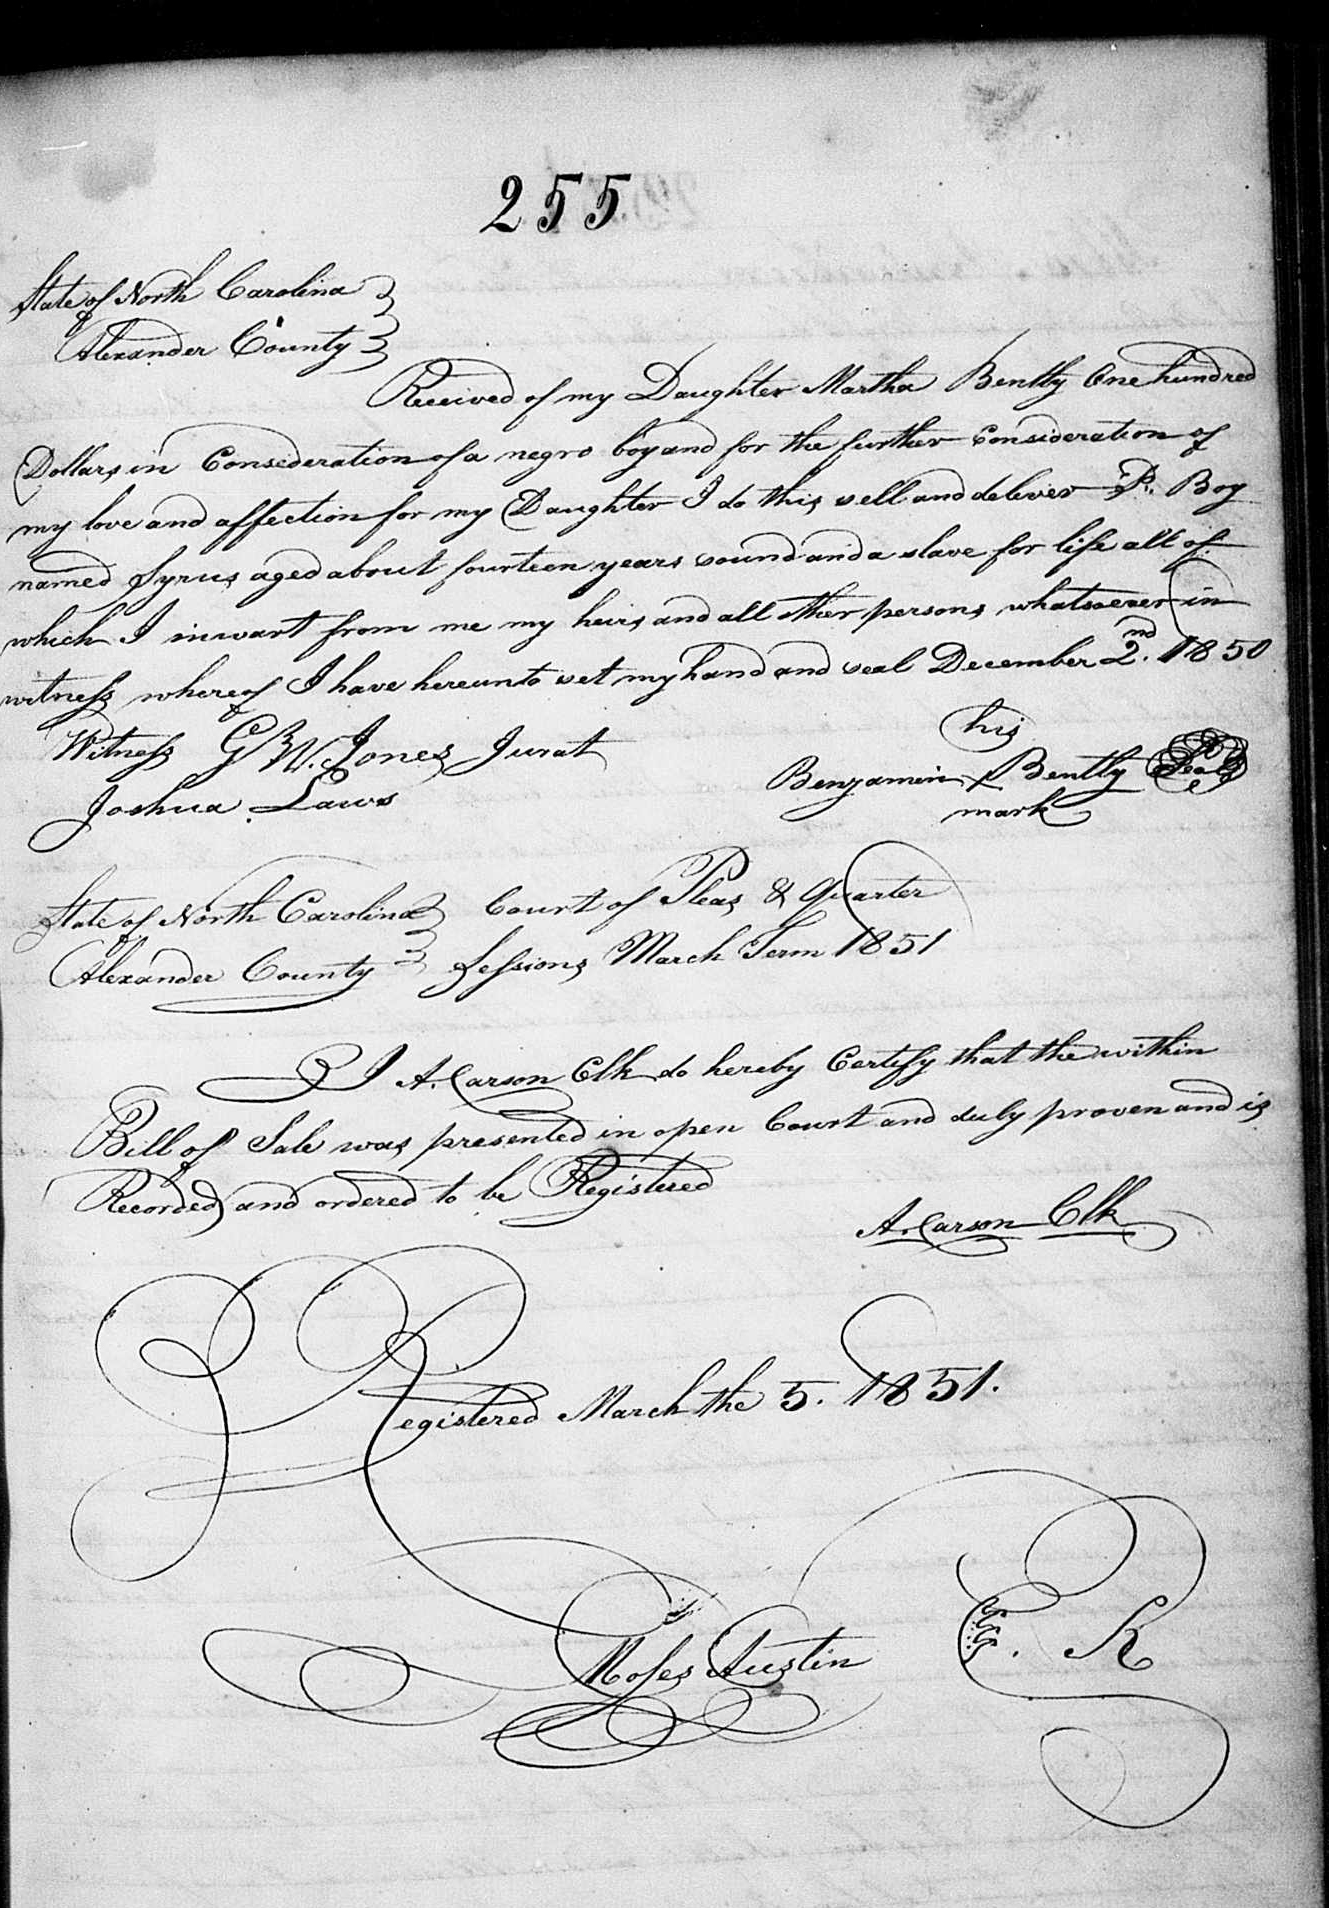 255
State of North Carolina
Alexander County
Received of my Daughter Martha Bently One hundred
Dollars in Consederation of a negro boy and for the further Consideration of
my love and affection for my Daughter I do this sell and deliver Boy
named Syrus aged about fourteen years sound and a slave for life all of
which I inwart from me my heirs and all other persons whatsoever in
witness whereof I have hereunto set my hand and seal December 2nd. 1850
Witness G. W. Jones Jurat
his
Joshua Laws
Benjamin X Bently Seal
mark
State of North Carolina Court of Pleas & Quarter
Alexander County Sessions March Term 1851
I A. Carson Clk do hereby Certify that the within
Bill of Sale was presented in open Court and duly proven and is
Recorded and ordered to be Registered
A. Carson Clk
Registered March the 5. 1851.
Moses Austin R